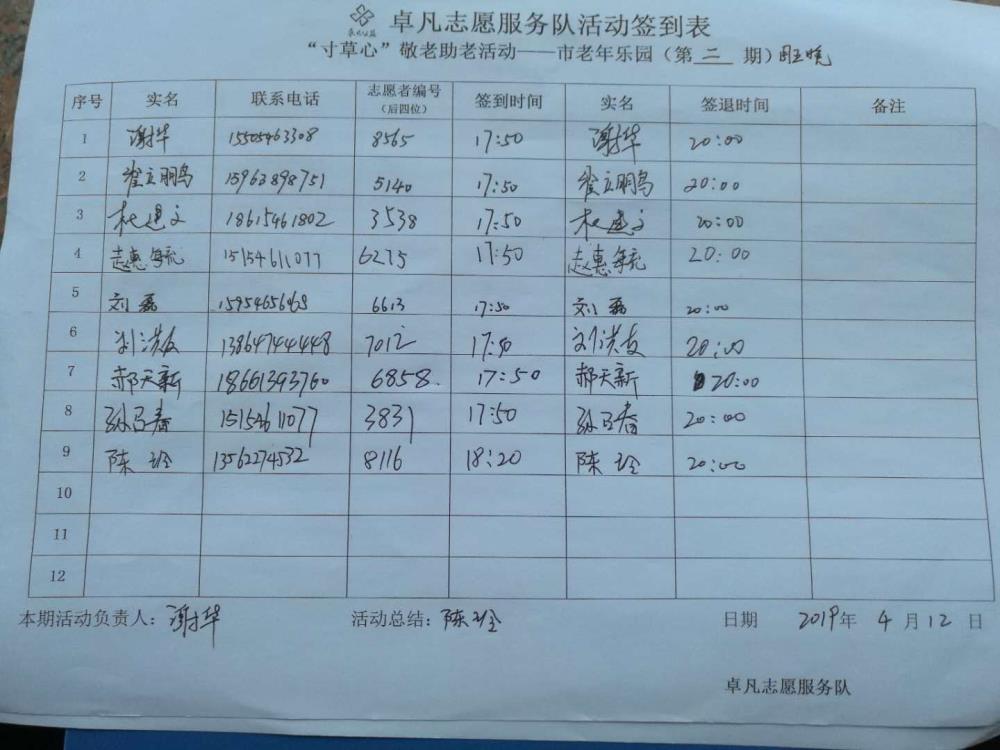 卓凡志愿服务队活动签到表
“寸草心”敬老助老活动——市老年乐园(第二期)
序号 实名 联系电话 志愿者编号(后四位) 签到时间 实名 签退时间 备注
1 谢华 15505463308 8565 17:50 谢华 20:00
2 翟立鹏 15963898751 5140 17:50 翟立鹏 20:00
3 杜建文 18615461802 3538 17:50 杜建文 20:00
4 赵惠毓 15154611077 6275 17:50 赵惠毓 20:00
5 刘磊 6613 17:50 刘磊 20:00
6 刘洪友 13864744448 7012 17:50 刘洪友 20:00
7 郝天新 18661393760 6858 17:50 郝天新 20:00
8 15154611077 3831 17:50 20:00
9 陈玲 13562274532 8116 18:20 陈玲 20:00
10
11
12
本期活动负责人:谢华 活动总结:陈玲 日期 2019年4月12日
卓凡志愿服务队